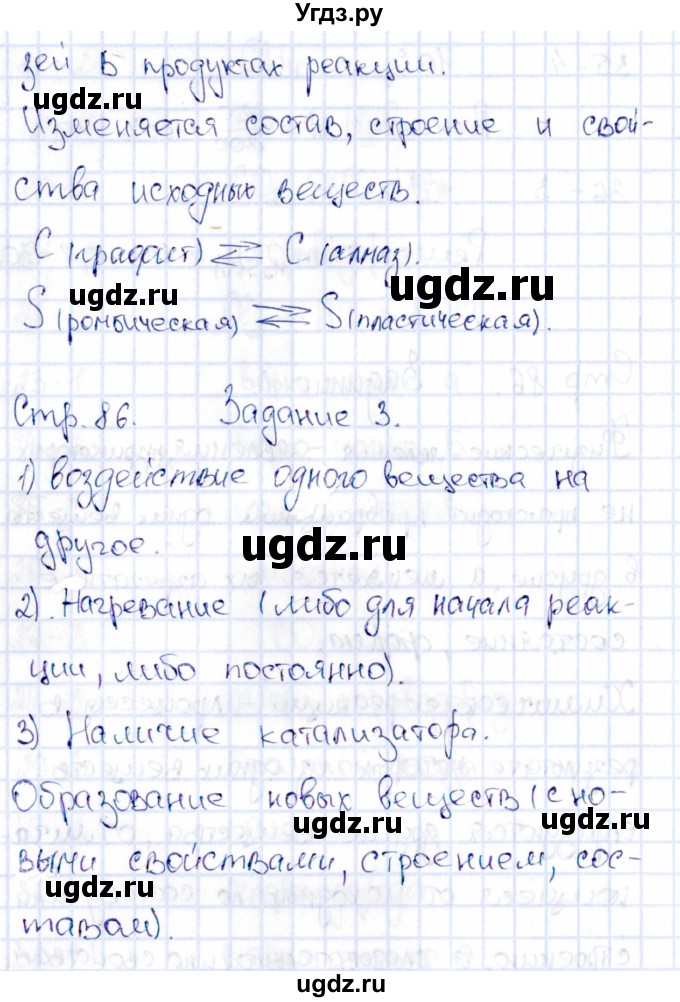 Угдз.ру
зей в продуктах реакции.
ugdz.ru
Изменяется состав, строение и свой-
ства исходных веществ.
C (графит) ⇄ C (алмаз).
ugdz.ru
ugdz.ru
S (ромбическая) ⇄ S (пластическая).
Стр. 86. Задание 3.
1) Воздействие одного вещества на
другое.
ugdz.ru
2). Нагревание (либо для начала реак-
ции, либо постоянно).
ugdz.ru
3) Наличие катализатора.
Образование новых веществ (с но-
ugdz.ru
выми свойствами, строением, сос-
ugdz.ru
тавом).
ugdz.ru